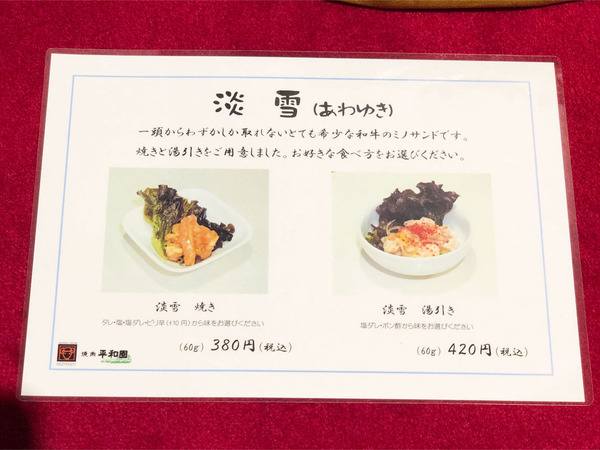 淡雪(あわゆき)
一頭からわずかしか取れないとても希少な和牛のミノサンドです。
焼きと湯引きをご用意しました。お好きな食べ方をお選びください。
淡雪 焼き
タレ・塩・塩ダレ・ピリ辛(+10円)から味をお選びください
(60g) 380円(税込)
淡雪 湯引き
塩ダレ・ポン酢から味をお選びください
(60g) 420円(税込)
焼肉 平和園